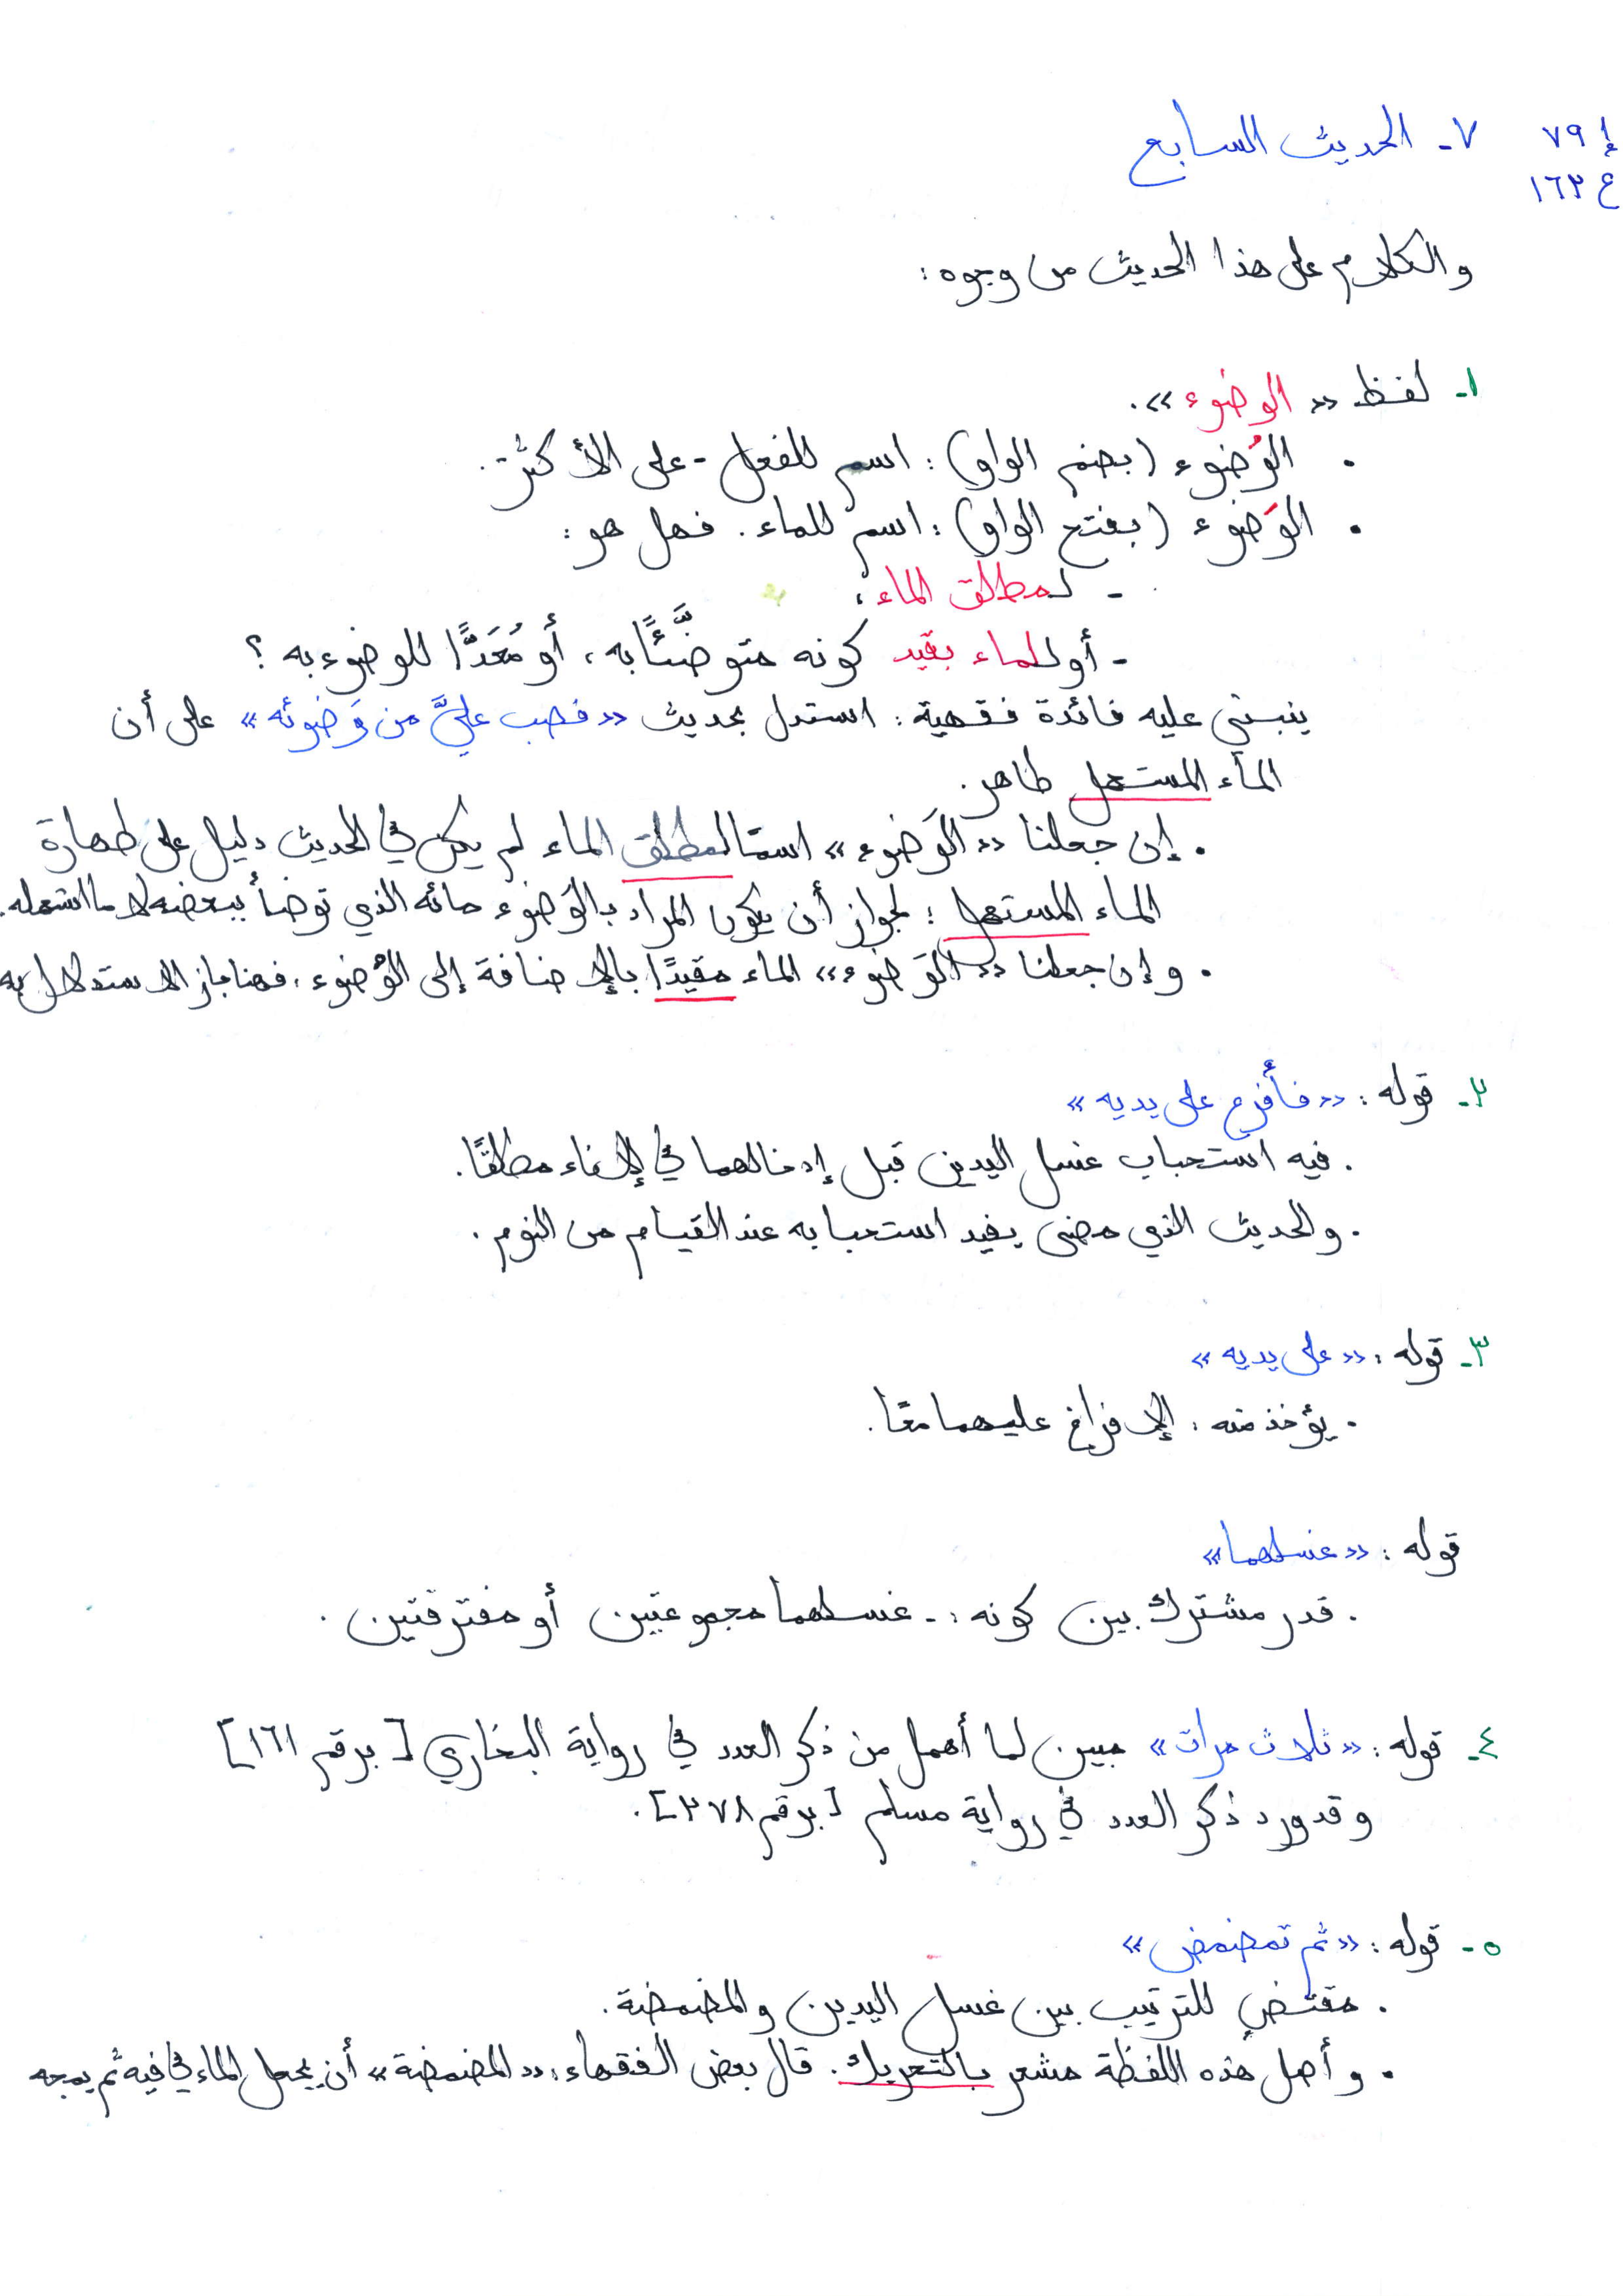 إ ٧٩
ع ١٦٣
٧- الحديث السابع
والكلام على هذا الحديث من وجوه:
١- لفظ «الوضوء».
• الوُضوء (بضم الواو): اسم للفعل - على الأكثر.
• الوَضوء (بفتح الواو): اسم للماء. فهل هو:
- لمطلق الماء،
- أو للماء بقيد كونه متوضَّئًا به، أو مُعَدًّا للوضوء به؟
ينبني عليه فائدة فقهية: استدل بحديث «فصب عليَّ من وَضوئه» على أن
الماء المستعمل طاهر.
• إن جعلنا «الوَضوء» اسمًا لمطلق الماء لم يكن في الحديث دليل على طهارة
الماء المستعمل؛ لجواز أن يكون المراد بالوَضوء مائه الذي توضأ ببعضه لا ما استعمله.
• وإن جعلنا «الوَضوء» الماء مقيدًا بالإضافة إلى الوُضوء، فهنا جاز الاستدلال به
٢- قوله: «فأفرغ على يديه»
• فيه استحباب غسل اليدين قبل إدخالهما في الإناء مطلقًا.
• والحديث الذي مضى يفيد استحبابه عند القيام من النوم.
٣- قوله: «على يديه»
• يؤخذ منه: الإفراغ عليهما معًا.
قوله: «غسلهما»
• قدر مشترك بين كونه:- غسلهما مجموعتين أو مفترقتين.
٤- قوله: «ثلاث مرات» مبين لما أهمل من ذكر العدد في رواية البخاري [برقم ١٦١]
وقد ورد ذكر العدد في رواية مسلم [برقم ٢٧٨].
٥- قوله: «ثم تمضمض»
• مقتضٍ للترتيب بين غسل اليدين والمضمضة.
• وأصل هذه اللفظة مشعر بالتحريك. قال بعض الفقهاء: «المضمضة» أن يجعل الماء في فيه ثم يمجه